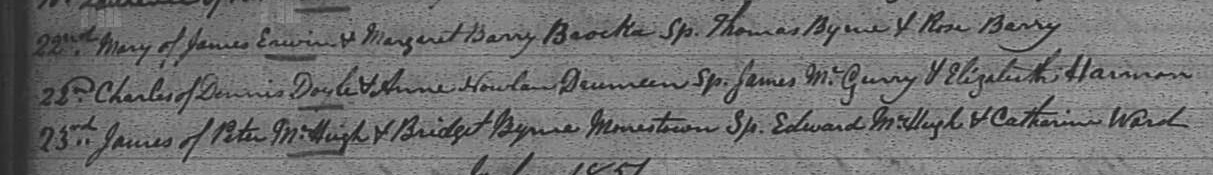 22nd. Mary of James Erwin & Margaret Barry Baocka Sp. Thomas Byrne & Rose Barry
22nd. Charles of Dennis Doyle & Anne Nowlan Drumeen Sp. James Mc.Gurry & Elizabeth Harmon
23rd. James of Peter McHugh & Bridget Byrne Monestown Sp. Edward McHugh & Catharine Ward